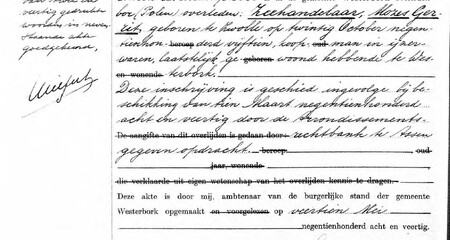 veertig gedrukte
woorden in neven-
staande akte
goedgekeurd,
bor, Polen overleden: Zeehandelaar, Mozes Ger-
rit, geboren te Zwolle op twintig October negen-
tienhon- beroep derd vijftien, koop- oud man en ijzer-
waren, laatstelijk ge geboren woond hebbende te Wes-
en wonende terbork.
Deze inschrijving is geschied ingevolge bij be-
schikking van tien Maart negentienhonderd
acht en veertig door de Arrondissements-
De aangifte van dit overlijden is gedaan door: rechtbank te Assen
gegeven opdracht. beroep: oud
jaar, wonende
die verklaarde uit eigen wetenschap van het overlijden kennis te dragen.
Deze akte is door mij, ambtenaar van de burgerlijke stand der gemeente
Westerbork opgemaakt en voorgelezen op veertien Mei
negentienhonderd acht en veertig.